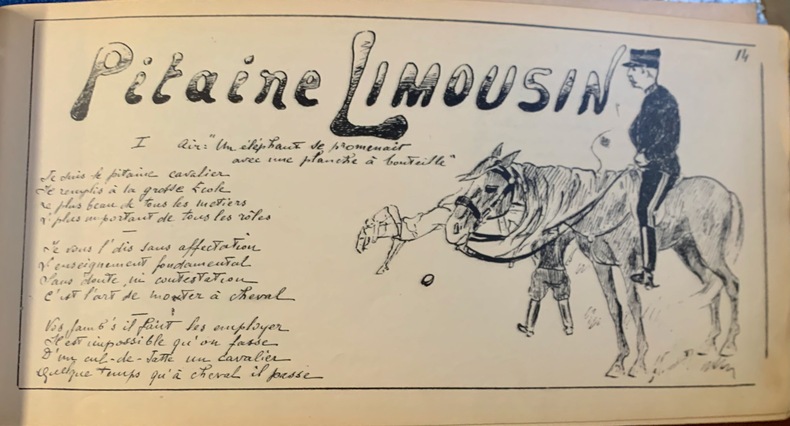 14
Pitaine LIMOUSIN
I Air: "Un éléphant se promenait
avec une planche à bouteille"
Je suis le pitaine cavalier
Je remplis à la grosse École
Le plus beau de tous les métiers
L'plus important de tous les rôles
Je vous l'dis sans affectation
L'enseignement fondamental
Sans doute ni contestation
C'est l'art de monter à cheval
Vos jamb's il faut les employer
Il est impossible qu'on fasse
D'un cul-de-jatte un cavalier
Quelque temps qu'à cheval il passe